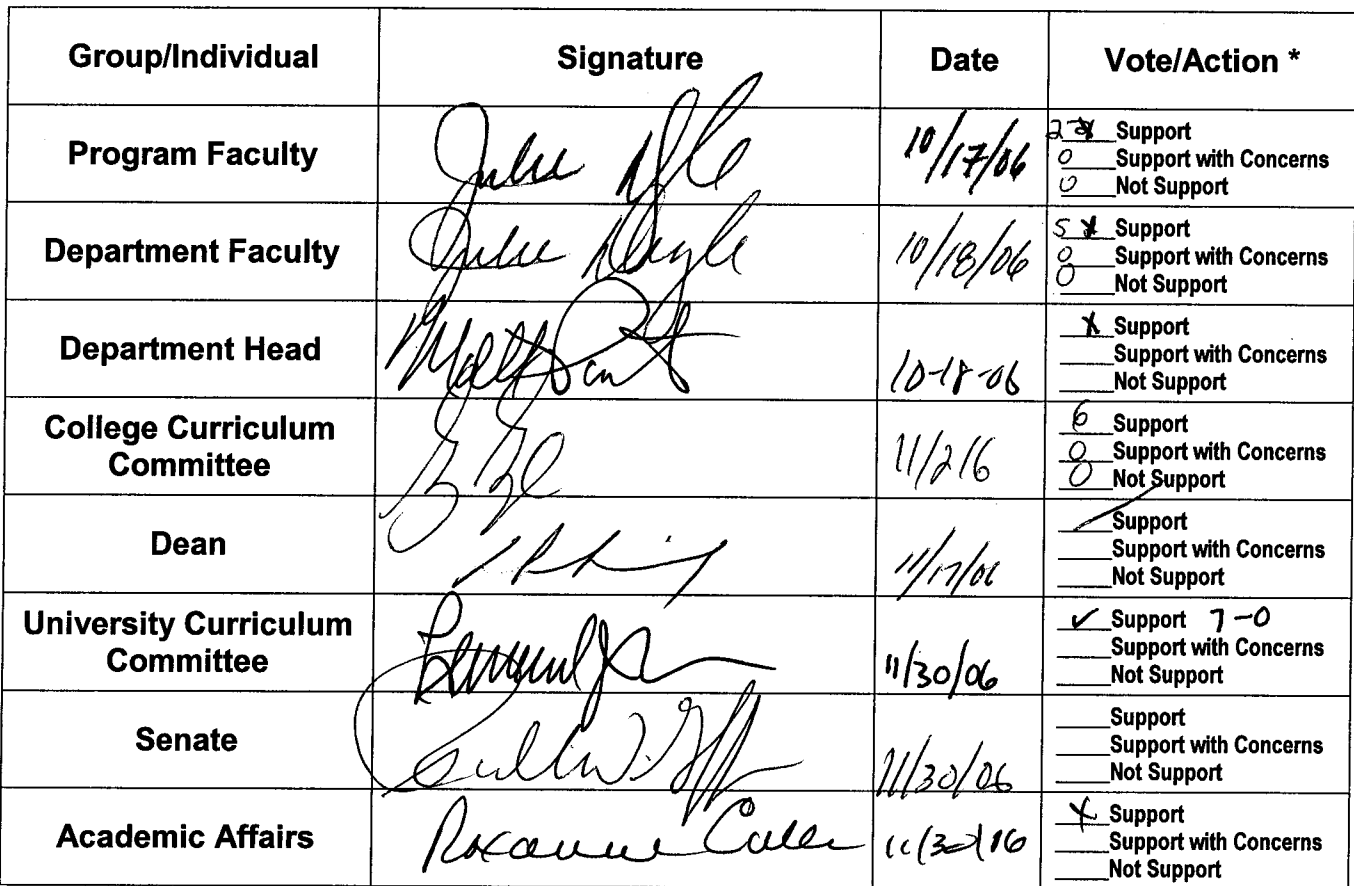 Group/Individual Signature Date Vote/Action *
Program Faculty Julie Doyle 10/17/06 2 Support
0 Support with Concerns
0 Not Support
Department Faculty Julie Doyle 10/18/06 5 Support
0 Support with Concerns
0 Not Support
Department Head 10-18-06 X Support
Support with Concerns
Not Support
College Curriculum
Committee 11/2/6 6 Support
0 Support with Concerns
0 Not Support
Dean 11/17/06 Support
Support with Concerns
Not Support
University Curriculum
Committee 11/30/06 ✓ Support 7-0
Support with Concerns
Not Support
Senate 11/30/06 Support
Support with Concerns
Not Support
Academic Affairs Roxanne Cullen 11/30/06 X Support
Support with Concerns
Not Support